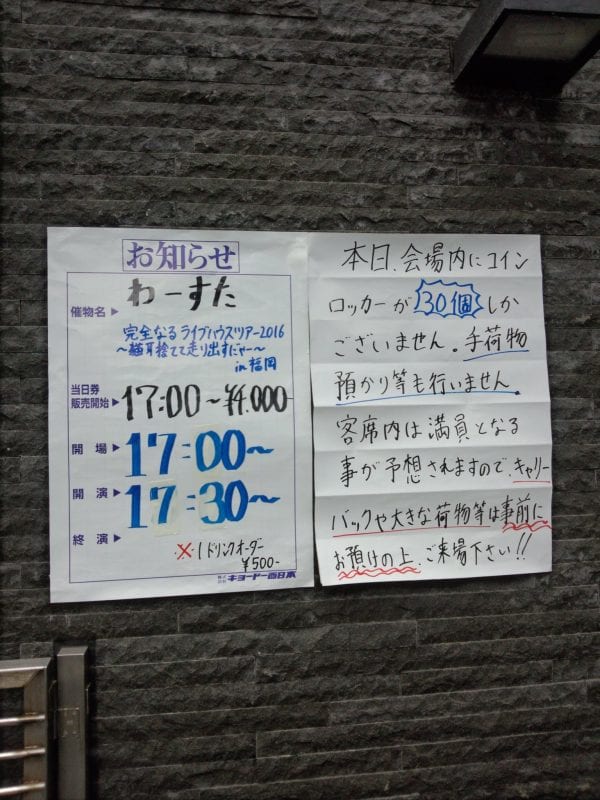 お知らせ
催物名▶ わーすた
完全なるライブハウスツアー2016
〜猫耳捨てて走り出すにゃー〜
in 福岡
当日券
販売開始▶ 17:00〜¥4,000-
開場▶ 17:00〜
開演▶ 17:30〜
終演▶
※・1ドリンクオーダー
¥500-
株式会社 キョードー西日本
本日、会場内にコイン
ロッカーが30個しか
ございません。手荷物
預かり等も行いません。
客席内は満員となる
事が予想されますのでキャリー
バックや大きな荷物等は事前に
お預けの上、ご来場下さい!!